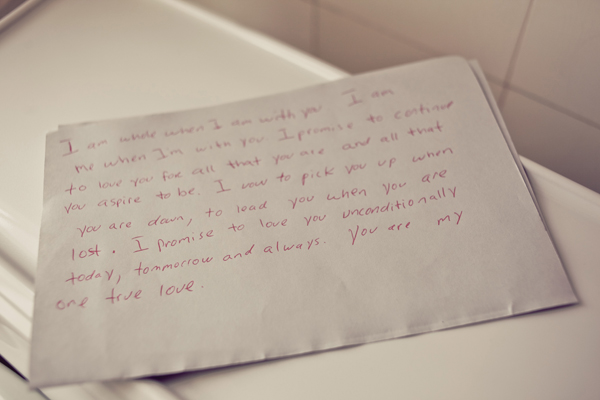 I am whole when I am with you I am
me when I'm with you I promise to continue
to love you for all that you are and all that
you aspire to be. I vow to pick you up when
you are down, to lead you when you are
lost. I promise to love you unconditionally
today, tommorrow and always. You are my
one true love.